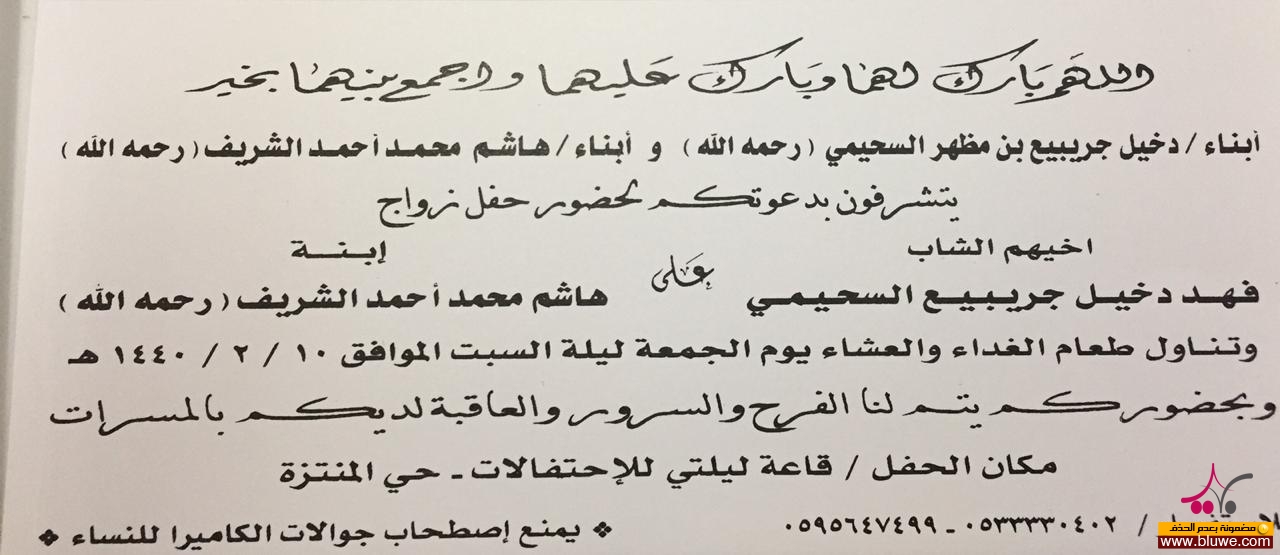 اللهم بارك لهما وبارك عليهما واجمع بينهما بخير
أبناء / دخيل جريبيع بن مظهر السحيمي (رحمه الله) و أبناء / هاشم محمد أحمد الشريف (رحمه الله)
يتشرفون بدعوتكم لحضور حفل زواج
اخيهم الشاب
إبنة
فهد دخيل جريبيع السحيمي على هاشم محمد أحمد الشريف (رحمه الله)
وتناول طعام الغداء والعشاء يوم الجمعة ليلة السبت الموافق ١٠ / ٢ / ١٤٤٠ هـ
وبحضوركم يتم لنا الفرح والسرور والعاقبة لديكم بالمسرات
مكان الحفل / قاعة ليلتي للإحتفالات - حي المنتزة
/ ٠٥٣٣٣٣٠٤٠٢ - ٠٥٩٥٦٤٧٤٩٩
❖ يمنع إصطحاب جوالات الكاميرا للنساء ❖
مضمونة بعدم الحذف
www.bluwe.com